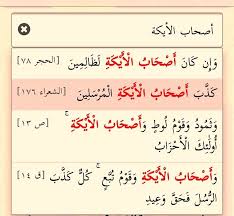 أصحاب الأيكة
وَإِن كَانَ أَصْحَابُ الْأَيْكَةِ لَظَالِمِينَ [الحجر ٧٨]
كَذَّبَ أَصْحَابُ الْأَيْكَةِ الْمُرْسَلِينَ [الشعراء ١٧٦]
وَثَمُودُ وَقَوْمُ لُوطٍ وَأَصْحَابُ الْأَيْكَةِ ۚ [ص ١٣]
أُولَٰئِكَ الْأَحْزَابُ
وَأَصْحَابُ الْأَيْكَةِ وَقَوْمُ تُبَّعٍ ۚ كُلٌّ كَذَّبَ [ق ١٤]
الرُّسُلَ فَحَقَّ وَعِيدِ